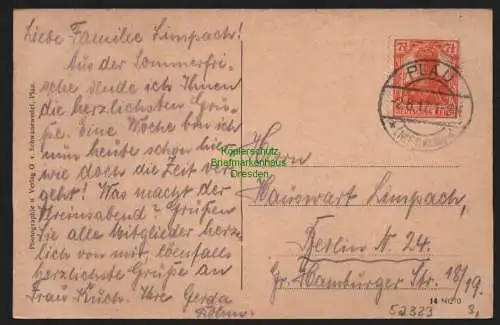 Liebe Familie Limpach!
Aus der Sommerfri-
sche sende ich Ihnen
die herzlichsten Grü-
ße. Eine Woche bin ich
nun heute schon hier
wie doch die Zeit ver-
geht! Was macht der
Vereinsabend? Grüßen
Sie alle Mitglieder herz-
lich von mir, ebenfalls
herzlichste Grüße an
Frau Kuch. Ihre Gerda
Photographie u. Verlag G. v. Schwanewedel, Plau.
7½ 7½
PLAU
(MECKLB.)
Kopierschutz
Briefmarkenhaus
Dresden
Herrn
Hauswart Limpach,
Berlin N. 24.
Gr. Hamburger Str. 18/19.
52323